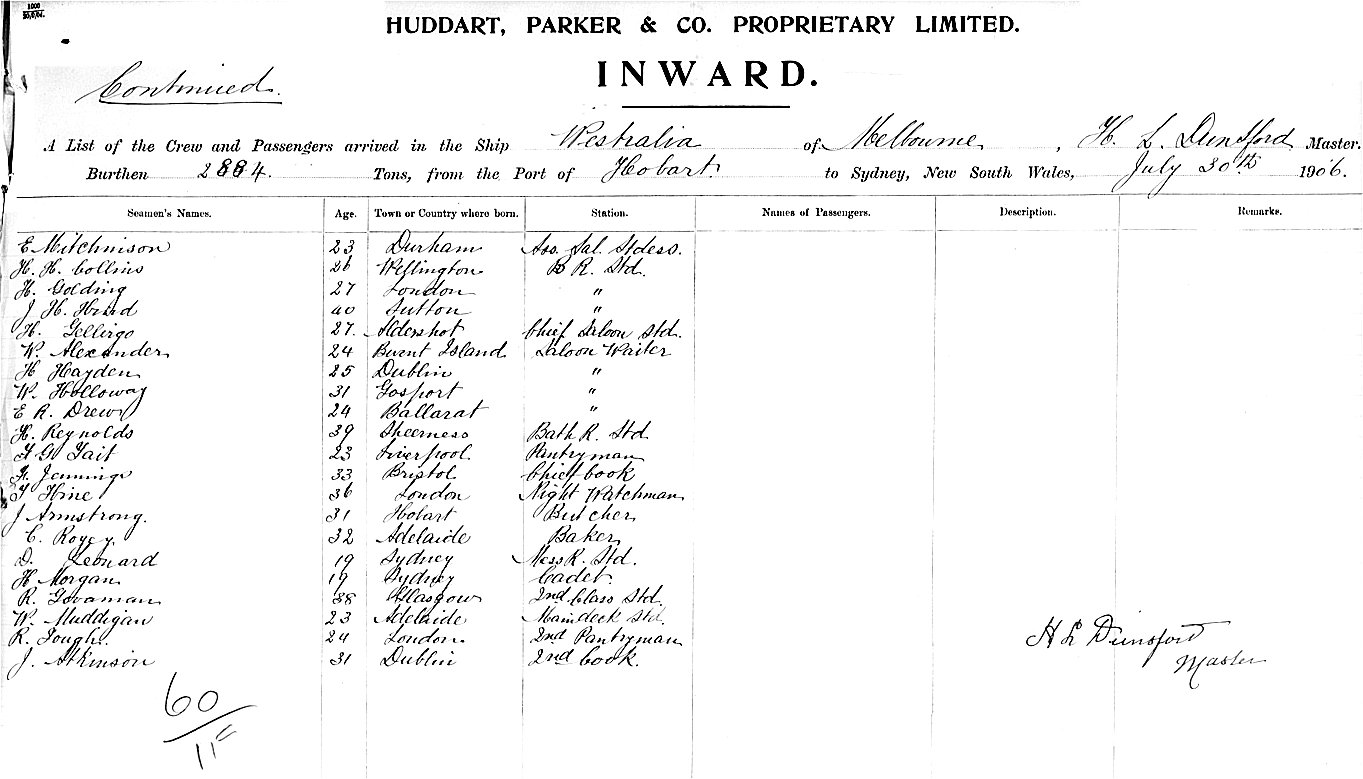 1000
HUDDART, PARKER & CO. PROPRIETARY LIMITED.
INWARD.
Continued.
A List of the Crew and Passengers arrived in the Ship Westralia of Melbourne, H. L. Dunsford Master.
Burthen 2884. Tons, from the Port of Hobart. to Sydney, New South Wales, July 30th 1906.
Seamen's Names. Age. Town or Country where born. Station. Names of Passengers. Description. Remarks.
E Mitchnison 23 Durham Ass. Sal. Stdess.
H. H. Collins 26 Wellington B R. Std.
H. Golding 27 London "
J H. Hind 40 Sutton "
H. 27. Aldershot Chief Saloon Std.
W. Alexander 24 Burnt Island Saloon Waiter
H Hayden 25 Dublin "
W. Holloway 31 Gosport "
E R. Drew 24 Ballarat "
H. Reynolds 39 Sheerness Bath R. Std.
F G Tait 23 Liverpool. Pantryman
H. Jennings 33 Bristol Chief Cook
T Hine 36 London Night Watchman
J Armstrong. 31 Hobart Butcher
C. 32 Adelaide Baker
D. Leonard 19 Sydney Mess R. Std.
H Morgan 19 Sydney Cadet.
R. 38 Glasgow 2nd Class Std.
W. Muddigan 23 Adelaide Maindeck Std.
R. Tough. 24 London. 2nd Pantryman
J. Atkinson 31 Dublin 2nd Cook.
H L Dunsford
Master
60
11